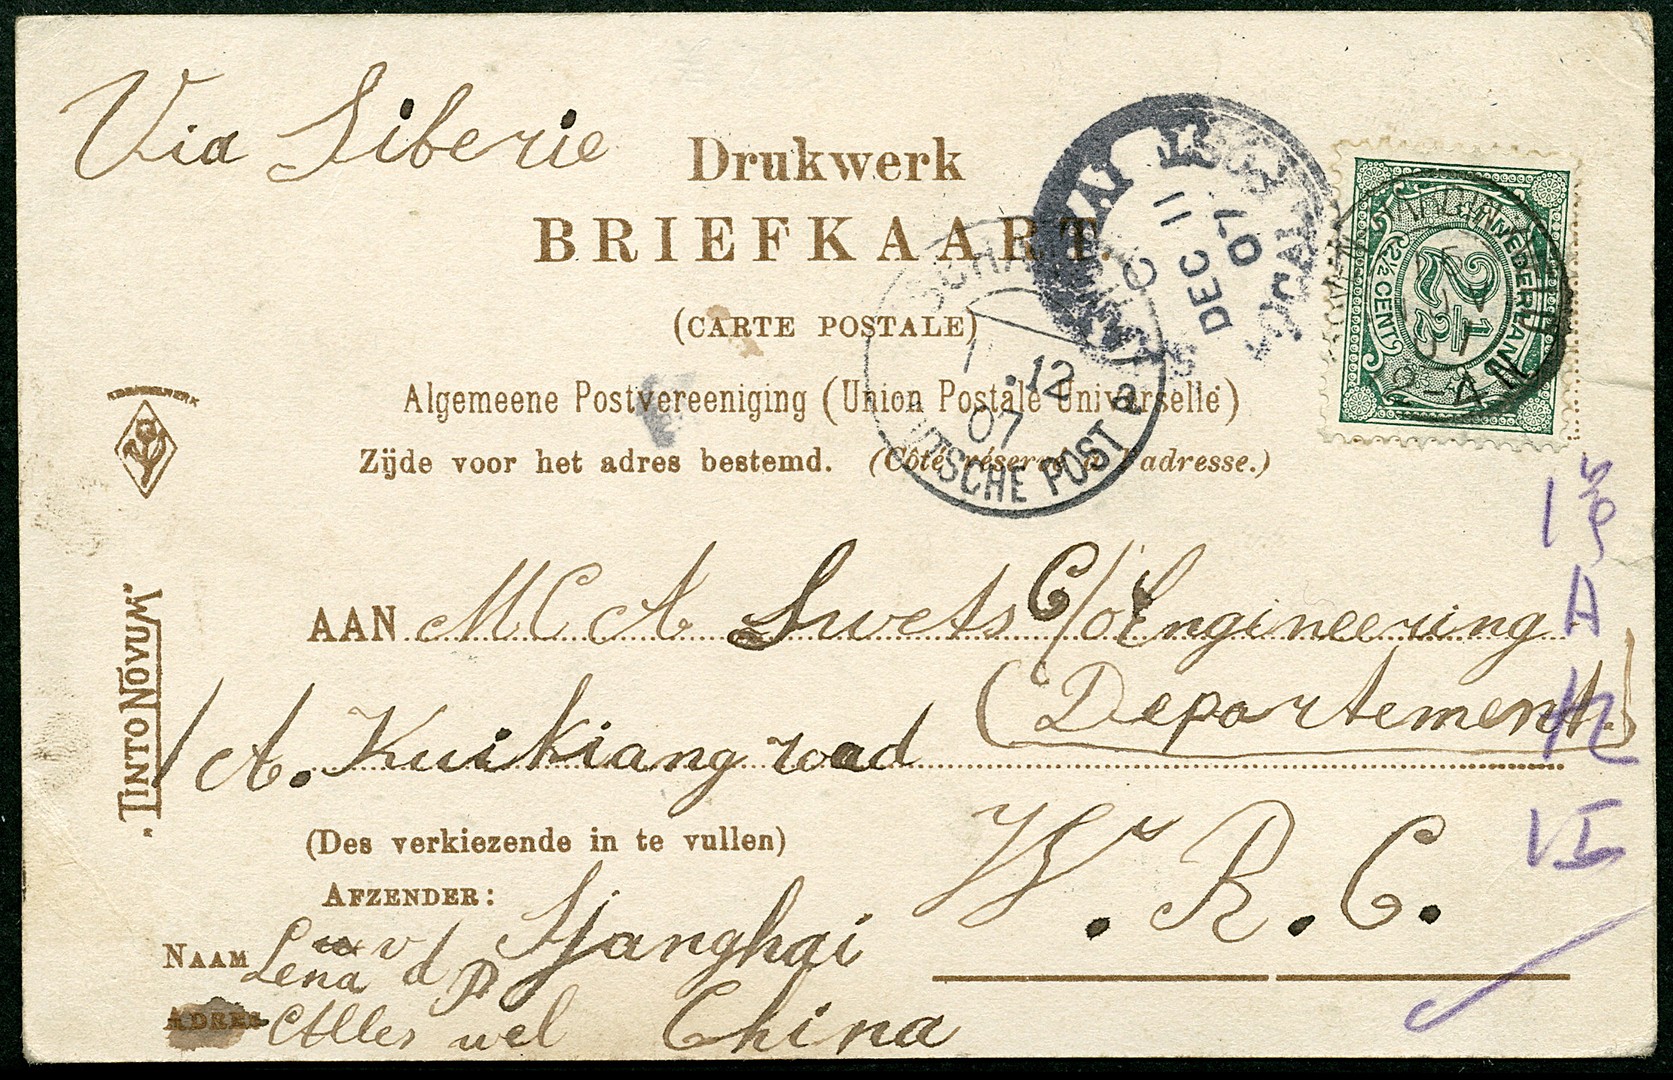 Via Siberie
Drukwerk
BRIEFKAART.
(CARTE POSTALE)
Algemeene Postvereeniging (Union Postale Universelle)
Zijde voor het adres bestemd. (Côté réservé à l'adresse.)
LOCAL POST
DEC 11
07
12
07
DEUTSCHE POST a
NEDERLAND
2½
2½ CENT
DRUKWERK
"TINTO NOVUM"
AAN M C A Swets C/o Engineering
(Departement)
A. Kuikiang road
W. R. C.
(Des verkiezende in te vullen)
AFZENDER:
Sjanghai
NAAM Lena v d P
China
ADRES Alles wel
A
VI